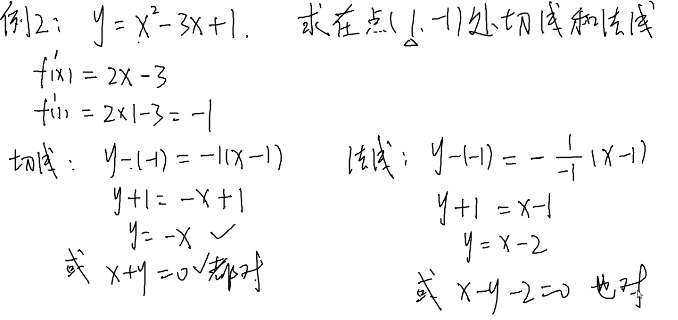 例2: y = x² - 3x + 1. 求在点(1, -1)处切线和法线
f'(x) = 2x - 3
f'(1) = 2×1 - 3 = -1
切线: y - (-1) = -1(x - 1)
y + 1 = -x + 1
y = -x ✓
或 x + y = 0 ✓ 都对
法线: y - (-1) = - 1/-1 (x - 1)
y + 1 = x - 1
y = x - 2
或 x - y - 2 = 0 也对